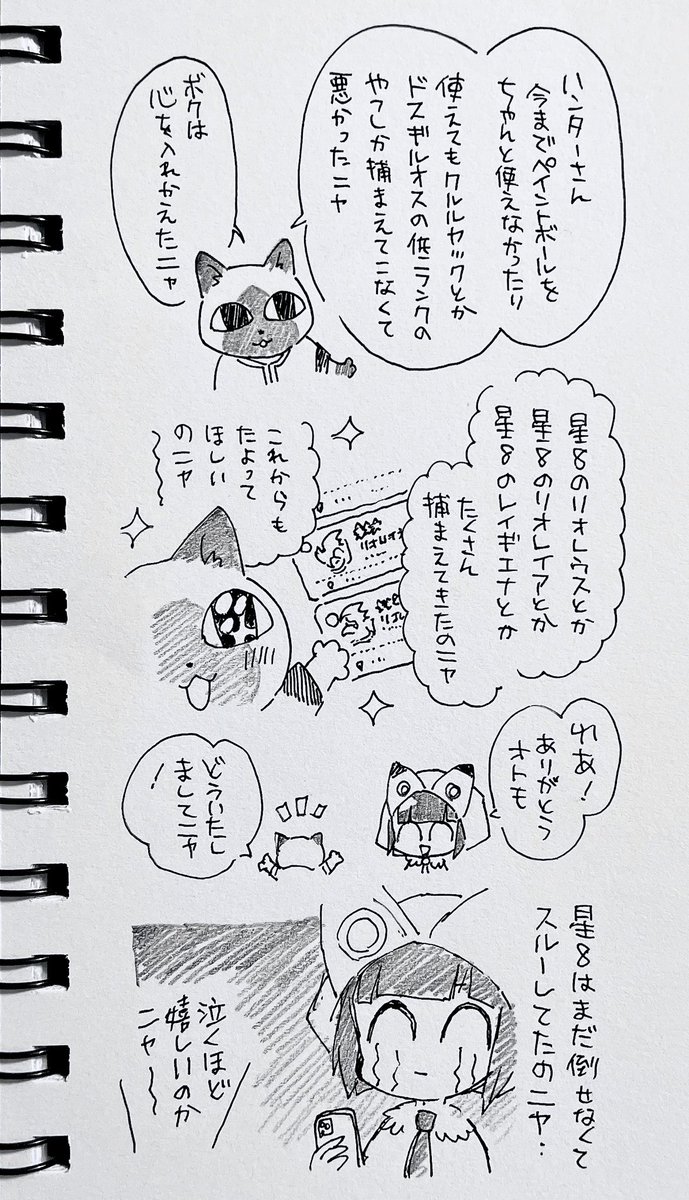 ハンターさん
今までペイントボールを
ちゃんと使えなかったり
使えてもクルルヤックとか
ドスギルオスの低ランクの
やつしか捕まえてこなくて
悪かったニャ
ボクは
心を入れかえたニャ
星8のリオレウスとか
星8のリオレイアとか
星8のレイギエナとか
たくさん
捕まえてきたのニャ
これからも
たよって
ほしい
のニャ
わあ!
ありがとう
オトモ
どういたし
ましてニャ
!
星8はまだ倒せなくて
スルーしてたのニャ…
泣くほど
嬉しいのか
ニャ〜〜